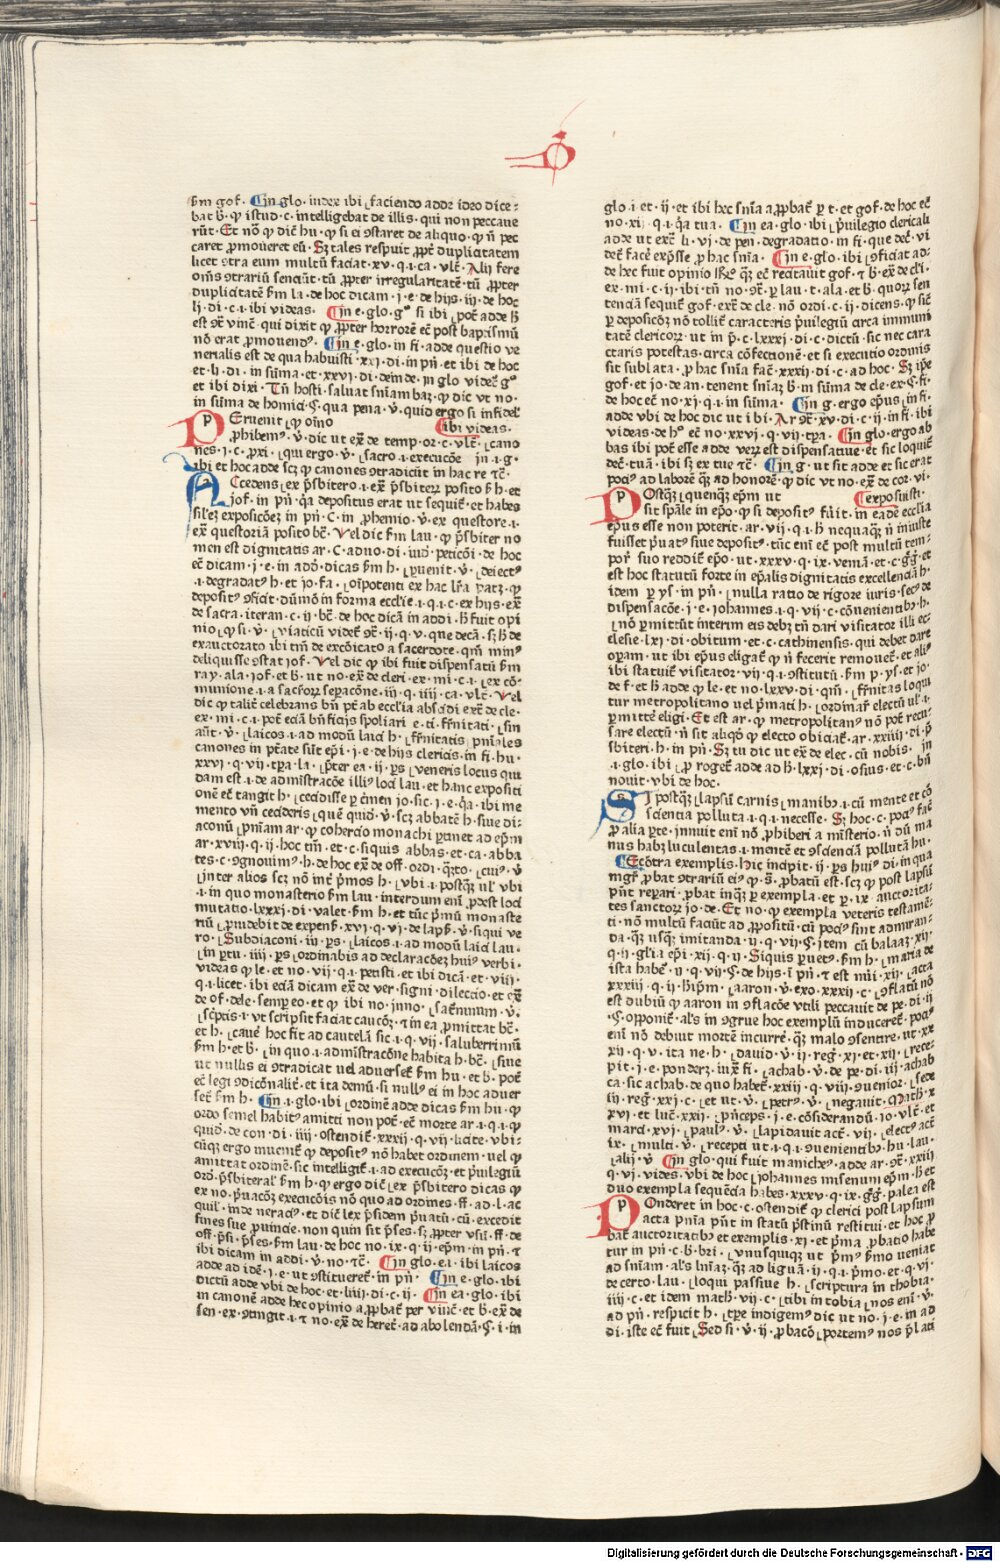 ẜm gof. ¶In glo. iudex ibi faciendo adde ideo dice
bat h̄. ꝙ istud. c. intelligebat de illis. qui non peccaue
rūt. Et nō ꝙ dic̄ hu. ꝙ si ei ↄstaret de aliquo. ꝙ n̄ pec
caret ꝓmoueret eū. Sꝫ tales respuit ꝓpt̄ duplicitatem
licet ↄtra eum multū faciat. xv. q. i. ca. vlt̄. Alij fere
om̄s ↄtrariū senciūt. tū ꝓpter irregularitatē. tū ꝓpter
duplicitatē
lj. di. c. i. ibi videas. ¶In e. glo. gͦ si ibi pot̄ adde h̄
est ↄt̄ vinc̄. qui dixit ꝙ ꝓpter horrorē ec̄ post baptismū
nō erat ꝓmouendꝰ. ¶In e. glo. in fi. adde questio ve
nerialis est de qua habuisti. xxj. di. in pn̄. et ibi de hoc
et. h̄. di. in sūma. et. xxvj. di. deinde. in glo videt̄ gͦ
et ibi dixi. Tn̄ hosti. saluat sn̄iam baꝫ. ꝙ dic vt no.
in sūma de homic̄. §. qua pena. v̄. quid ergo si infidel̄
Peruenit ꝙ oīno ¶ibi videas.
ꝓhibemꝰ. v̄. dic ut ex̄ de temp. or. c. vlt̄. cano
nes. i. c. ꝓxi. qui ergo. v̄. sacro. i. execucōe in. i. g.
ibi et hoc adde scꝫ ꝙ canones ↄtradicūt in hac re tc̄.
Accedens ex p̄sbitero. i. ex p̄sbiterꝝ posito h̄ h. et
jof. in pn̄. q̄a depositus erat ut sequit̄. et habes
exposicōeꝫ in pn̄. c. in ꝓhemio. v̄. ex questore. i.
ex̄ questoriā posito bc̄. Vel dic ẜm lau. ꝙ p̄sbiter no
men est dignitatis ar. c. adno. di. iud. peticōi. de hoc
ec̄ dicam. j. e. in adō. dicas ẜm h. ꝓuenit. v̄. deiectꝰ
.i. degradatꝰ h. et jo. fa. oīpotenti ex hac lr̄a patꝫ. ꝙ
depositꝰ ↄficit. dūmō in forma ecclīe. i. q. i. c. ex hijs. ex̄
de sacra. iteran. c. ij. bc̄. de hoc dicā in addi. h̄ fuit opi
nio. ꝙ si. v̄. viaticū videt̄ ↄt̄. ij. q. v. que decā. sꝫ h̄ de
exauctorato ibi tn̄ de excōicato a sacerdote. qm̄ minꝰ
deliquisse ↄstat jof. Vel dic ꝙ ibi fuit dispensatū ẜm
ray. ala. jof. et h̄. ut no. ex̄ de cleri. ex. mi. c. i. ex cō
munione. i. a sacroꝝ sepacōne. iij. q. iiij. ca. vlt̄. Vel
dic ꝙ talit̄ celebrans bn̄ pt̄ ab ecclīa abscīdi ext̄ de cle.
ex. mi. c. i. pot̄ eciā bn̄ficijs spoliari
aūt. v̄. laicos. i. ad modū laici h. pn̄iales
canones in ptāte sūt ep̄i. j. e. de hijs clericis. in fi. hu.
xxvj. q. vij. tp̄a. la. p̄ter ea. ij. ps. veneris locus qui
dam est. i. de admīstracōe illiꝰ loci lau. et hanc expositi
onē ec̄ tangit h. cecidisse ꝑ c̄men jo. sic. j. e. q̄a. ibi me
mento vn̄ cecideris. quē quid. v̄. scꝫ abbatē h. siue di
aconū. pn̄iam ar. ꝙ cohercio monachi ꝑtinet ad ep̄m
ar. xviij. q. ij. hoc tm̄. et. c. siquis abbas. et. ca. abba
tes. c. ↄgnouimꝰ. h. de hoc ex̄ de off. ordi. q̄rto. cuiꝰ. v̄
inter alios scꝫ nō int̄ p̄mos h. vbi. i. postqꝫ ul̄ vbi
.i. in quo monasterio ẜm lau. interdum eni ꝓdest loci
mutatio. lxxxj. di. valet. ẜm h. et tūc p̄mū monaste
riū ꝓuidebit de expensꝭ. xvj. q. vj. de lapsꝭ. v̄. siqui ve
ro. Subdiaconi. iij. ps. laicos. i. ad modū laici lau.
in ꝑtu. iiij. ps. ordinabis ad declaracōeꝫ huiꝰ verbi.
videas ꝙ le. et no. vij. q. i. petisti. et ibi dicā. et. viij.
q. i. licet. ibi eciā dicam ex̄ de ver. signi. dilectio. et ex̄
de of. dele. semper eo. et ꝙ ibi no. jnno. v̄.
sc̄ptis. i. vt scripsit faciat caucōꝫ. t in ea ꝓmittat bc̄.
et h. cauē hoc fit ad cautelā sic. i. q. vij. saluberrimū
ẜm h. et h̄. in quo. i. admistracōne habita h. bc̄. siue
ut nullis ei ↄtradicat vel aduersēt̄ ẜm hu. et h̄. pot̄
ec̄ legi ↄdicōnalit̄. et ita demū. si nullꝰ ei in hoc aduer
set̄ ẜm h. ¶In. i. glo. ibi ordinē adde dicas ẜm hu. ꝙ
ordo semel habitꝰ amitti non pot̄. ec̄ morte ar. i. q. i.
quid. de con. di. iiij. ostendit̄. xxxij. q. vij. licite. vbi
cūqꝫ ergo inuenit̄ ꝙ depositꝰ nō habet ordinem. vel ꝙ
amittat ordinē. sic intelligit̄. i. ad execucōꝫ et p̄uilegiū
ord. p̄sbiteral̄ ẜm h. ꝙ ergo dic̄ ex p̄sbitero dicas ꝙ
ex no. p̄uacōꝫ execucōis nō quo ad ordines. ff. ad. l. ac
quil. inde neraciꝰ. et dic̄ lex p̄sidem p̄uatū. cū excedit
fines sue ꝓuincie. non quin sit p̄ses. sꝫ ꝓpter vsū. ff. de
off. p̄si. p̄ses. ẜm lau. de hoc no. ix. q. ij. ep̄m. in pn̄. t
ibi dicam in addi. v̄. no. tc̄. ¶In glo. e. i. ibi laicos
adde ad idē. j. e. ut ↄstitueret̄. in pn̄. ¶In e. glo. ibi
dictū adde vbi de hoc. et. liiij. di. c. ij. ¶In ea. glo. ibi
in canonē adde hec opinio aꝓbat̄ per vinc̄. et h̄. ex̄ de
sen. ex. ↄtingit. i. t no. ex̄ de heret̄. ad abolendā. §. i. in
glo. i. et. ij. et ibi hec sn̄ia aꝓbat̄ ꝑ t. et gof. de hoc ec̄
no. xj. q. i. q̄a tua. ¶In ea. glo. ibi p̄uilegio clericali
adde ut exr̄ li. vj. de pen. degradatio. in fi. que dec̄. vi
det̄ facē exp̄sse ꝓ hac sn̄ia. ¶In e. glo. ibi ↄficiat ad
de hec fuit opinio qꝫ ec̄ recitauit gof. t h̄. ex̄ de cli.
ex. mi. c. ij. ibi tū no. ↄt̄. ꝑ lau. t. ala. et h̄. quoꝝ sen
tenciā sequit̄ gof. ext̄ de cle. nō ordi. c. ij. dicens. ꝙ sic
ꝑ deposicōꝫ nō tollit̄ caracteris p̄uilegiū circa immuni
tatē clericoꝝ. ut in p̄. c. lxxxj. di. c. dictū. sic nec cara
ctaris potestas. circa cōfectionē. et si executio ordinis
sit sublata. ꝓ hac sn̄ia fac̄. xxxij. di. c. ad hoc. Sꝫ ip̄e
gof. et jo. de an. tenent sn̄iaꝫ h̄. in sūma de cle. ex. §. fi.
de hoc ec̄ no. xj. q. i. in sūma. ¶In g. ergo ep̄us. in fi.
adde vbi de hoc dic ut ibi. Ar ↄt̄. xv. di. c. ij. in fi. ibi
videas. de hͦ ec̄ no. xxvj. q. vij. tp̄a. ¶In glo. ergo ab
bas ibi pot̄ esse adde verꝝ est dispensatiue. et sic loquit̄
dec̄. tuā. ibi sꝫ ex tue tc̄. ¶In g. ut sit adde et sic erat
pociꝰ ad laborē qꝫ ad honorē. ꝙ dic vt no. ex̄ de cor. vi.
Postqꝫ quenqꝫ ep̄m ut ¶exposuisti.
sit sp̄āle in ep̄o. ꝙ si depositꝰ fūit. in eadē ecclīa
ep̄us esse non poterit. ar. vij. q. i. h̄ nequaqꝫ. n̄ iniuste
fuisset p̄uatꝰ siue depositꝰ. tūc eni ec̄ post multū tem
por̄ suo reddit̄ ep̄o. ut. xxxv. q. ix. veniā. et. c. et
est hoc statutū forte in ep̄alis dignitatis excellenciā h.
idem ꝑ ys. in pn̄. nulla ratio de rigore iuris. secꝰ de
dispensacōe. j. e. johannes. i. q. vij. c. cōuenientibꝫ. h.
nō ꝑmittūt interim eis debꝫ tn̄ dari visitator illi ec
clesie. lxj. di. obitum. et. c. cathinensis. qui debet dare
oꝑam. ut ibi ep̄us eligat̄. ꝙ n̄ fecerit remouet̄. et aliꝰ
ibi statuit̄ visitator. vij. q. i. ↄstitutū. ẜm p. ys. et jo.
de f. et h̄ adde ꝙ le. et no. lxxv. di. qm̄. loqui
tur metropolitano uel p̄mati h. ordinar̄ electū ul̄. i.
ꝑmittē eligi. Et est ar. ꝙ metropolitanꝰ nō pot̄ recu
sare electū. n̄ sit aliqd̄ ꝙ electo obiciat̄. ar. xxiiij. di. p̄
sbiteri. h. in pn̄. Sꝫ tu dic ut ex̄ de elec. cū nobis. in
.i. glo. ibi ꝓ roget̄ adde ad h̄. lxxj. di. osius. et. c. bn̄
nouit. vbi de hoc.
Si postqꝫ lapsū carnis manibꝫ. i. cū mente et cō
sciencia polluta. i. q. i. necesse. Sꝫ hoc. c. pociꝰ fac̄
ꝓ alia ꝑte. innuit eni nō ꝓhiberi a misterio. n̄ dū ma
nus habꝫ luculentas. i. mentē et ↄscienciā pollutā hu.
¶Ecōtra exemplis. Hic incipit. ij. ps huiꝰ di. in qua
mgr̄ ꝓbat ↄtrariū eiꝰ ꝙ. s. ꝓbatū est. scꝫ ꝙ post lapsū
pn̄t reꝑari. ꝓbat inqꝫ ꝑ exempla. et ꝑ. ix. auctorita
tes sanctoꝝ jo. de. Et no. ꝙ exempla veteris testamē
ti. nō multū faciūt ad ꝓpositū. cū pociꝰ sint admiran
da. qꝫ usqꝫ imitanda. ij. q. vij. §. item cū balaaꝫ. xij.
q. ij. gl̄ia ep̄i. xij. q. ij. Siquis ꝑuetꝰ. ẜm h. maria de
ista habet̄. ij. q. vij. §. de hijs. i pn̄. t est nūi. xij. acta
xxxiij. q. ij. hīpm̄. aaron. v̄. exo. xxxij. c. ↄflatū nō
est dubiū ꝙ aaron in ↄflacōe vituli peccauit de pe. di. ij
.§. opponit̄. al̄s in ↄgrue hoc exemplū induceret̄. pociꝰ
eni nō debuit mortē incurrē. qꝫ malo ↄsentire. ut. xx
xij. q. v. ita ne. h. dauid. v̄. ij. reḡ. xj. et. xij. rece
pit. j. e. ponderꝫ. iux̄ fi. achab. v̄. de pe. di. iij. achab
ca. sic achab. de quo habet̄. xxiij. q. viij. ↄuenior. sede
iij. reḡ. xxj. c. et ut. v̄. petrꝰ. v̄. negauit. Math̄. x
xvj. et luc̄. xxij. p̄nceps. j. e. cōsiderandū. io. vlt̄. et
marci. xvj. paulꝰ. v̄. lapidauit act̄. vij. electꝰ act̄
ix. multi. v̄. recepti ut. i. q. i. ↄuenientibꝫ. hu. lau.
alij. v̄ ¶In glo. qui fuit manicheꝰ. adde ar. ↄt̄. xxiij
q. vj. vides. vbi de hoc johannes misenum ep̄m. h̄. et
duo exempla sequēcia habes. xxxv. q. ix. palea est
Ponderet in hoc. c. ostendit̄ ꝙ clerici post lapsum
acta pn̄ia pn̄t in statū p̄stinū restitui. et hoc ꝓ
bat̄ auctoritatibꝫ et exemplis. xj. et p̄ma ꝓbatio habe
tur in pn̄. c. h̄. bri. vnusquiqꝫ ut p̄mꝰ p̄mo veniat
ad sn̄iam. al̄s lr̄iaꝫ. qꝫ ad liguā. ij. q. i. p̄mo. et. q. vj.
de certo. lau. loqui passiue h. scriptura in thobia.
iiij. c. et idem math̄. vij. c. tibi in tobia. nos eni. v̄.
ad pn̄. respicit h. tp̄e indigemꝰ dic ut no. j. e. in ad
di. iste ec̄ fuit Sed si. v̄. ij. ꝓbacō portemꝰ nos p̄lati
Digitalisierung gefördert durch die Deutsche Forschungsgemeinschaft - DFG